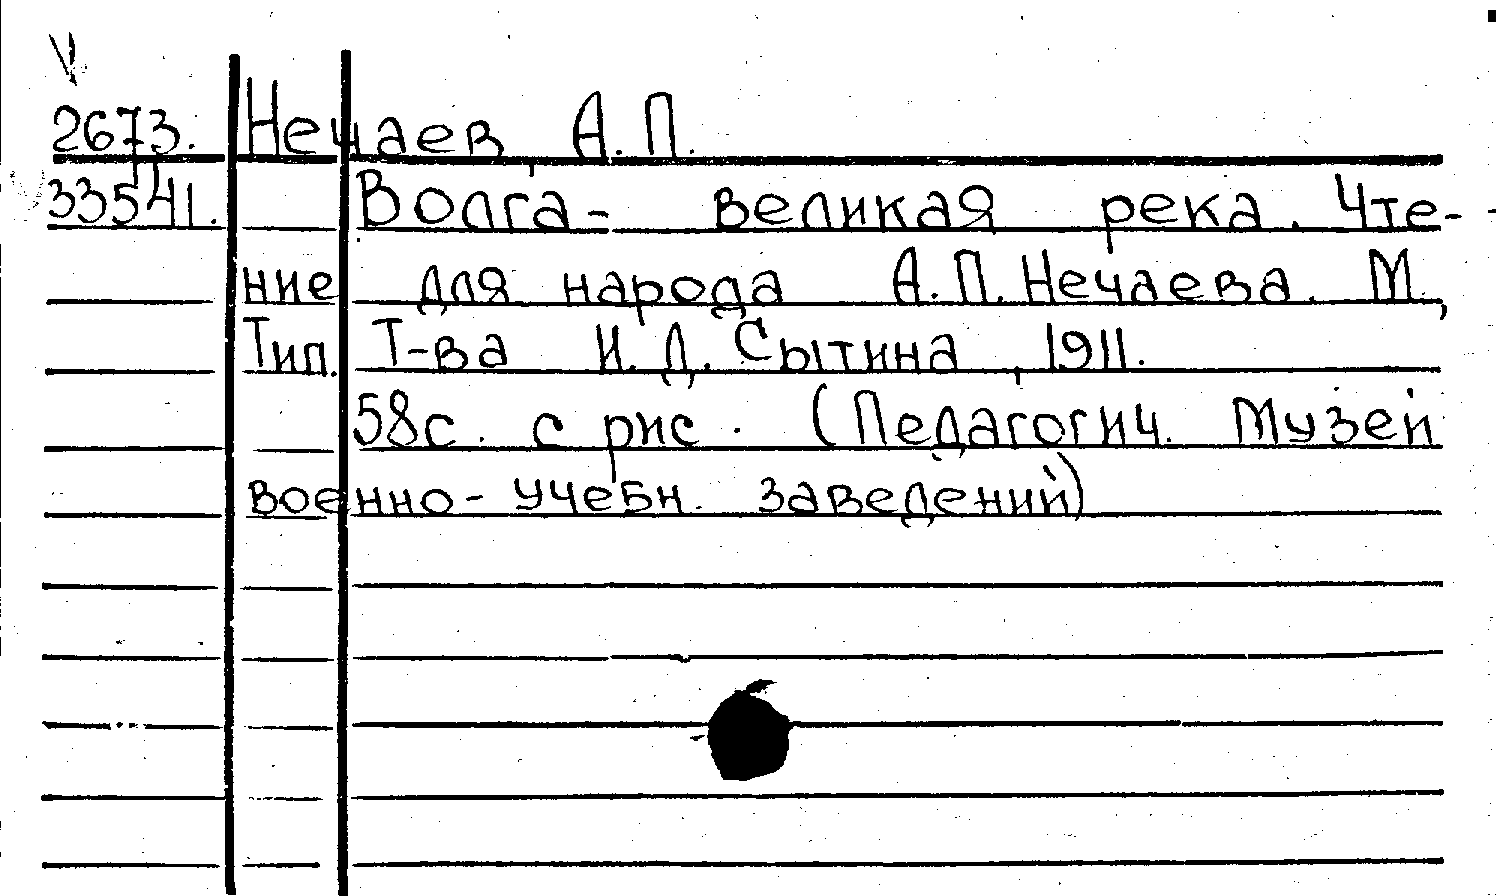 V
2673. Нечаев, А.П.
33541. Волга - великая река. Чте-
ние для народа А.П. Нечаева. М.,
Тип. Т-ва И.Д. Сытина, 1911.
58с. с рис. (Педагогич. Музей
военно-учебн. заведений)